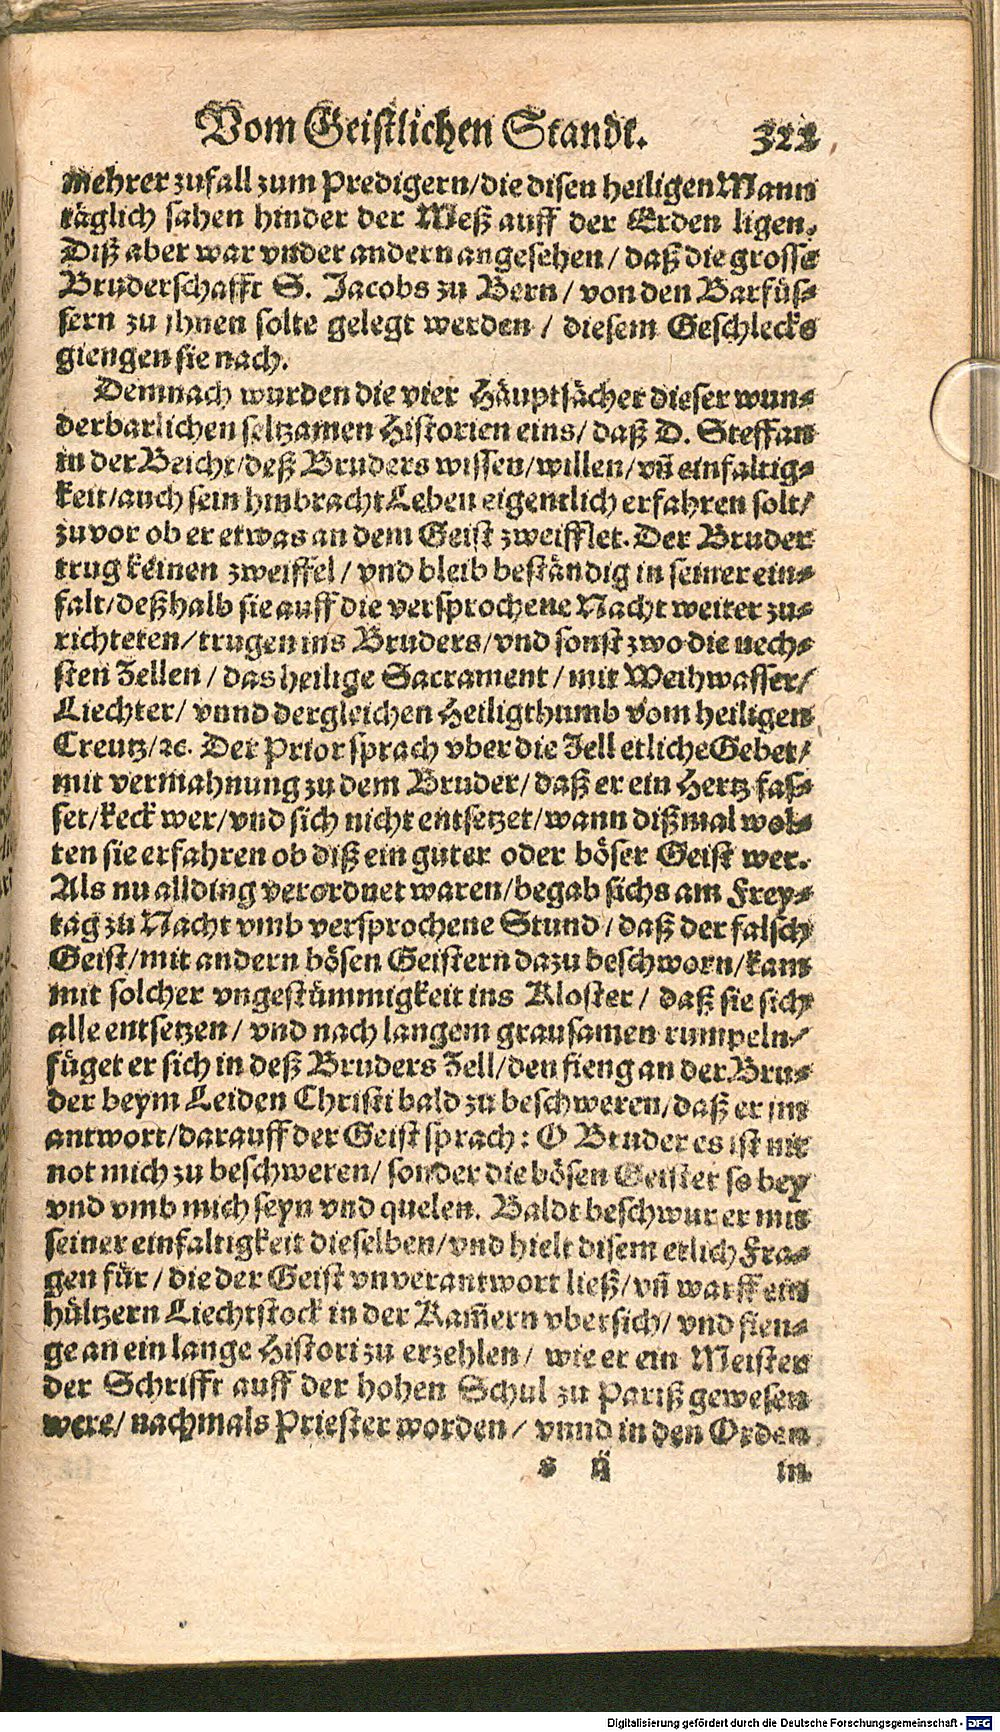 Vom Geistlichen Standt. 322
mehrer zufall zum Predigern/die disen heiligen Mann
täglich sahen hinder der Meß auff der Erden ligen.
Diß aber war vnder andern angesehen/ daß die grosse
Bruderschafft S. Jacobs zu Bern/ von den Barfüs-
sern zu jhnen solte gelegt werden/ diesem Geschlecks
giengen sie nach.
Demnach wurden die vier Häuptsächer dieser wun-
derbarlichen seltzamen Historien eins/ daß D. Steffan
in der Beicht/deß Bruders wissen/willen/vñ einfaltig-
keit/auch sein hinbracht Leben eigentlich erfahren solt/
zu vor ob er etwas an dem Geist zweifflet. Der Bruder
trug keinen zweiffel/ vnd bleib beständig in seiner ein-
falt/deßhalb sie auff die versprochene Nacht weiter zu-
richteten/trugen ins Bruders/vnd sonst zwo die nech-
sten Zellen/ das heilige Sacrament/ mit Weihwasser/
Liechter/ vnnd dergleichen Heiligthumb vom heiligen
Creutz/ꝛc. Der Prior sprach vber die Zell etliche Gebet/
mit vermahnung zu dem Bruder/ daß er ein Hertz fas-
set/keck wer/vnd sich nicht entsetzet/wann dißmal wol-
ten sie erfahren ob diß ein guter oder böser Geist wer.
Als nu allding verordnet waren/begab sichs am Frey-
tag zu Nacht vmb versprochene Stund/ daß der falsch
Geist/mit andern bösen Geistern dazu beschworn/kam
mit solcher vngestümmigkeit ins Kloster/ daß sie sich
alle entsetzen/ vnd nach langem grausamen rumpeln/
füget er sich in deß Bruders Zell/den fieng an der Bru-
der beym Leiden Christi bald zu beschweren/daß er jm
antwort/darauff der Geist sprach: O Bruder es ist nit
not mich zu beschweren/ sonder die bösen Geister so bey
vnd vmb mich seyn vnd quelen. Baldt beschwur er mit
seiner einfaltigkeit dieselben/vnd hielt disem etlich Fra-
gen für/ die der Geist vnverantwort ließ/vñ warff ein
hültzern Liechtstock in der Kam̃ern vbersich/ vnd fien-
ge an ein lange Histori zu erzehlen/ wie er ein Meister
der Schrifft auff der hohen Schul zu Pariß gewesen
were/ nachmals Priester worden/ vnnd in den Orden
s ij in
Digitalisierung gefördert durch die Deutsche Forschungsgemeinschaft - DFG